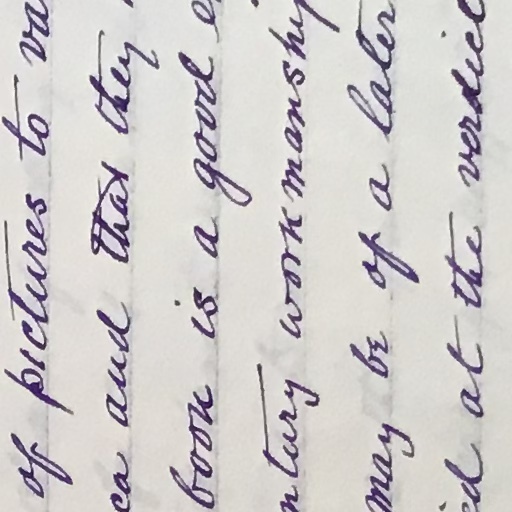 of pictures to va
ca and that they
book is a good e
ntury workmanship
may be of a later
ed at the verdict